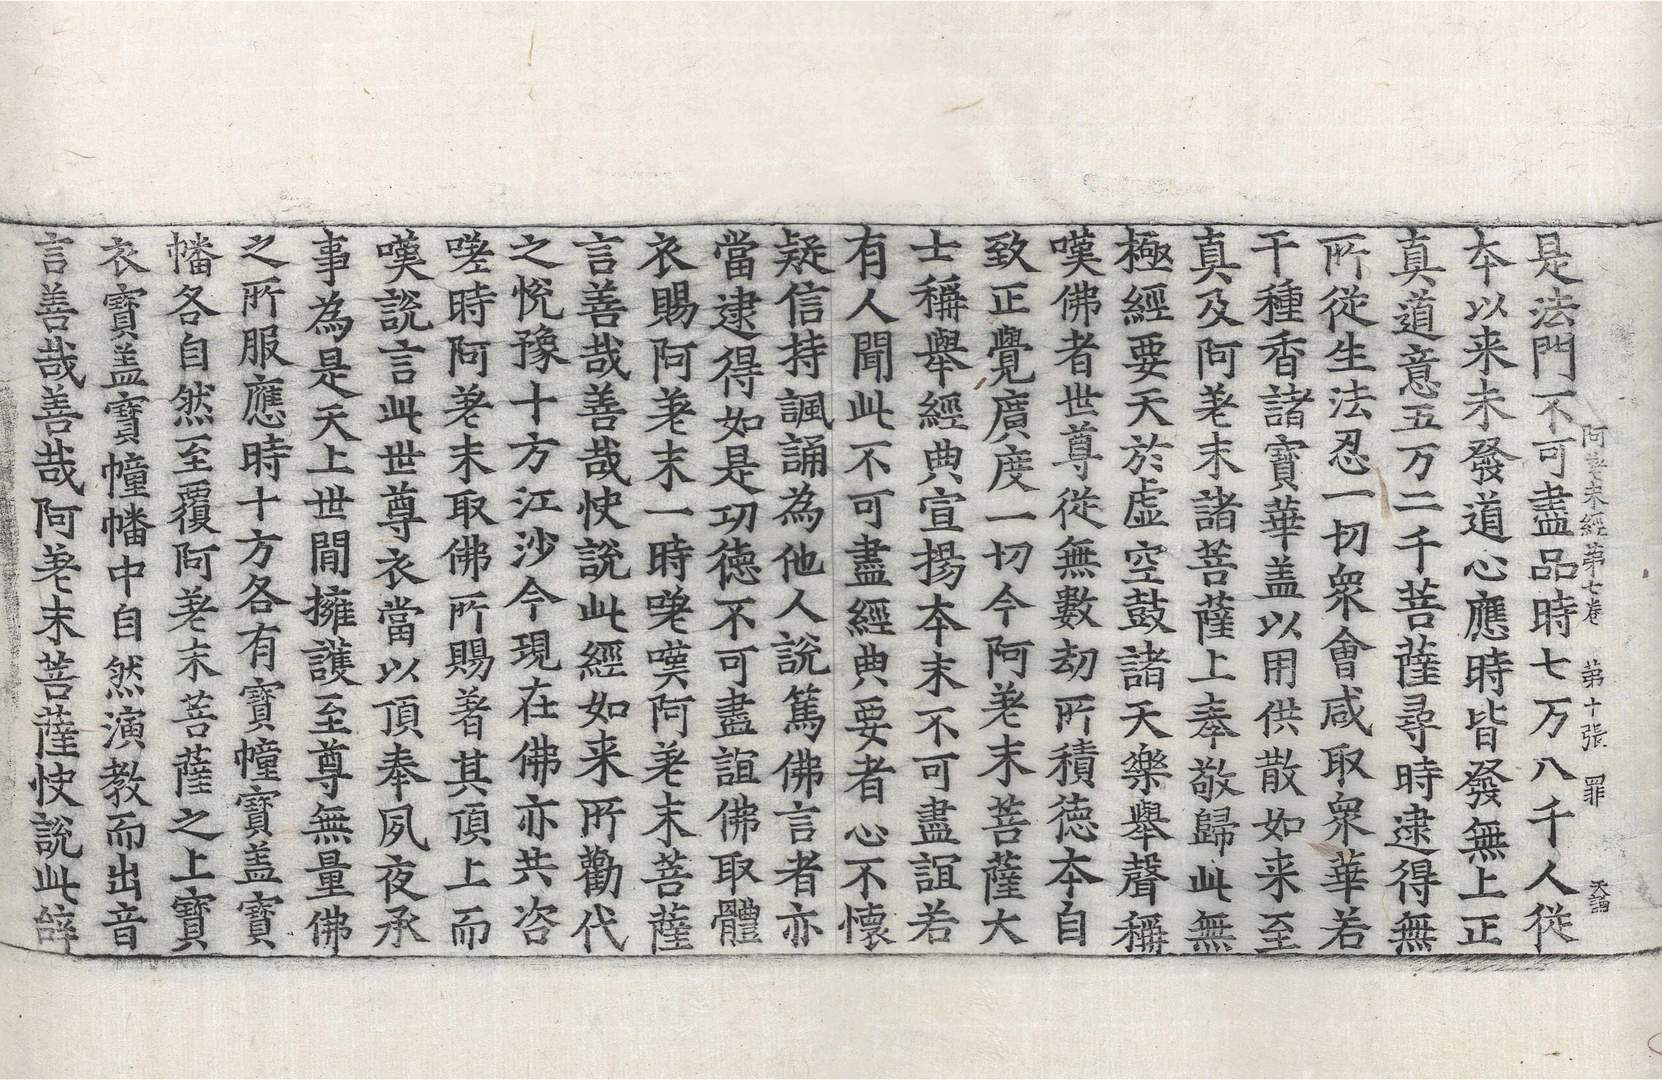 阿差末經第七卷 第十張 罪
是法門不可盡品時七万八千人從
本以来未發道心應時皆發無上正
真道意五万二千菩薩尋時逮得無
所從生法忍一切衆會咸取衆華若
干種香諸寶華盖以用供散如来至
真及阿差末諸菩薩上奉敬歸此無
極經要天於虛空鼓諸天樂舉聲稱
嘆佛者世尊從無數劫所積德本自
致正覺廣度一切今阿差末菩薩大
士稱舉經典宣揚本末不可盡誼若
有人聞此不可盡經典要者心不懷
疑信持諷誦為他人說篤佛言者亦
當逮得如是功德不可盡誼佛取體
衣賜阿差末一時嗟嘆阿差末菩薩
言善哉善哉快說此經如来所勸代
之悅豫十方江沙今現在佛亦共咨
嗟時阿差末取佛所賜著其頂上而
嘆說言此世尊衣當以頂奉夙夜承
事為是天上世間擁護至尊無量佛
之所服應時十方各有寶幢寶盖寶
幡各自然至覆阿差末菩薩之上寶
衣寶盖寶幢幡中自然演教而出音
言善哉善哉阿差末菩薩快說此辞